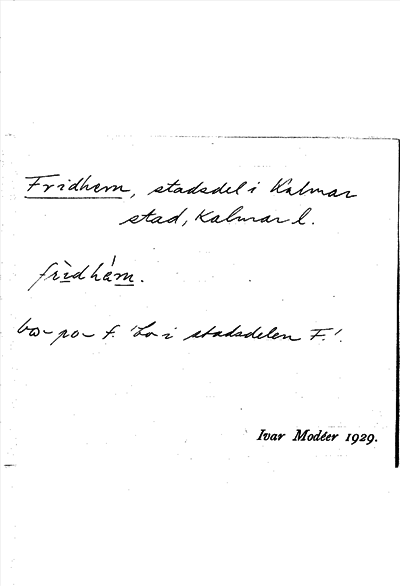 Fridhem, stadsdel i Kalmar
stad, Kalmar l.
frìdhám.
bo- po- f. 'bo i stadsdelen F.'.
Ivar Modéer 1929.